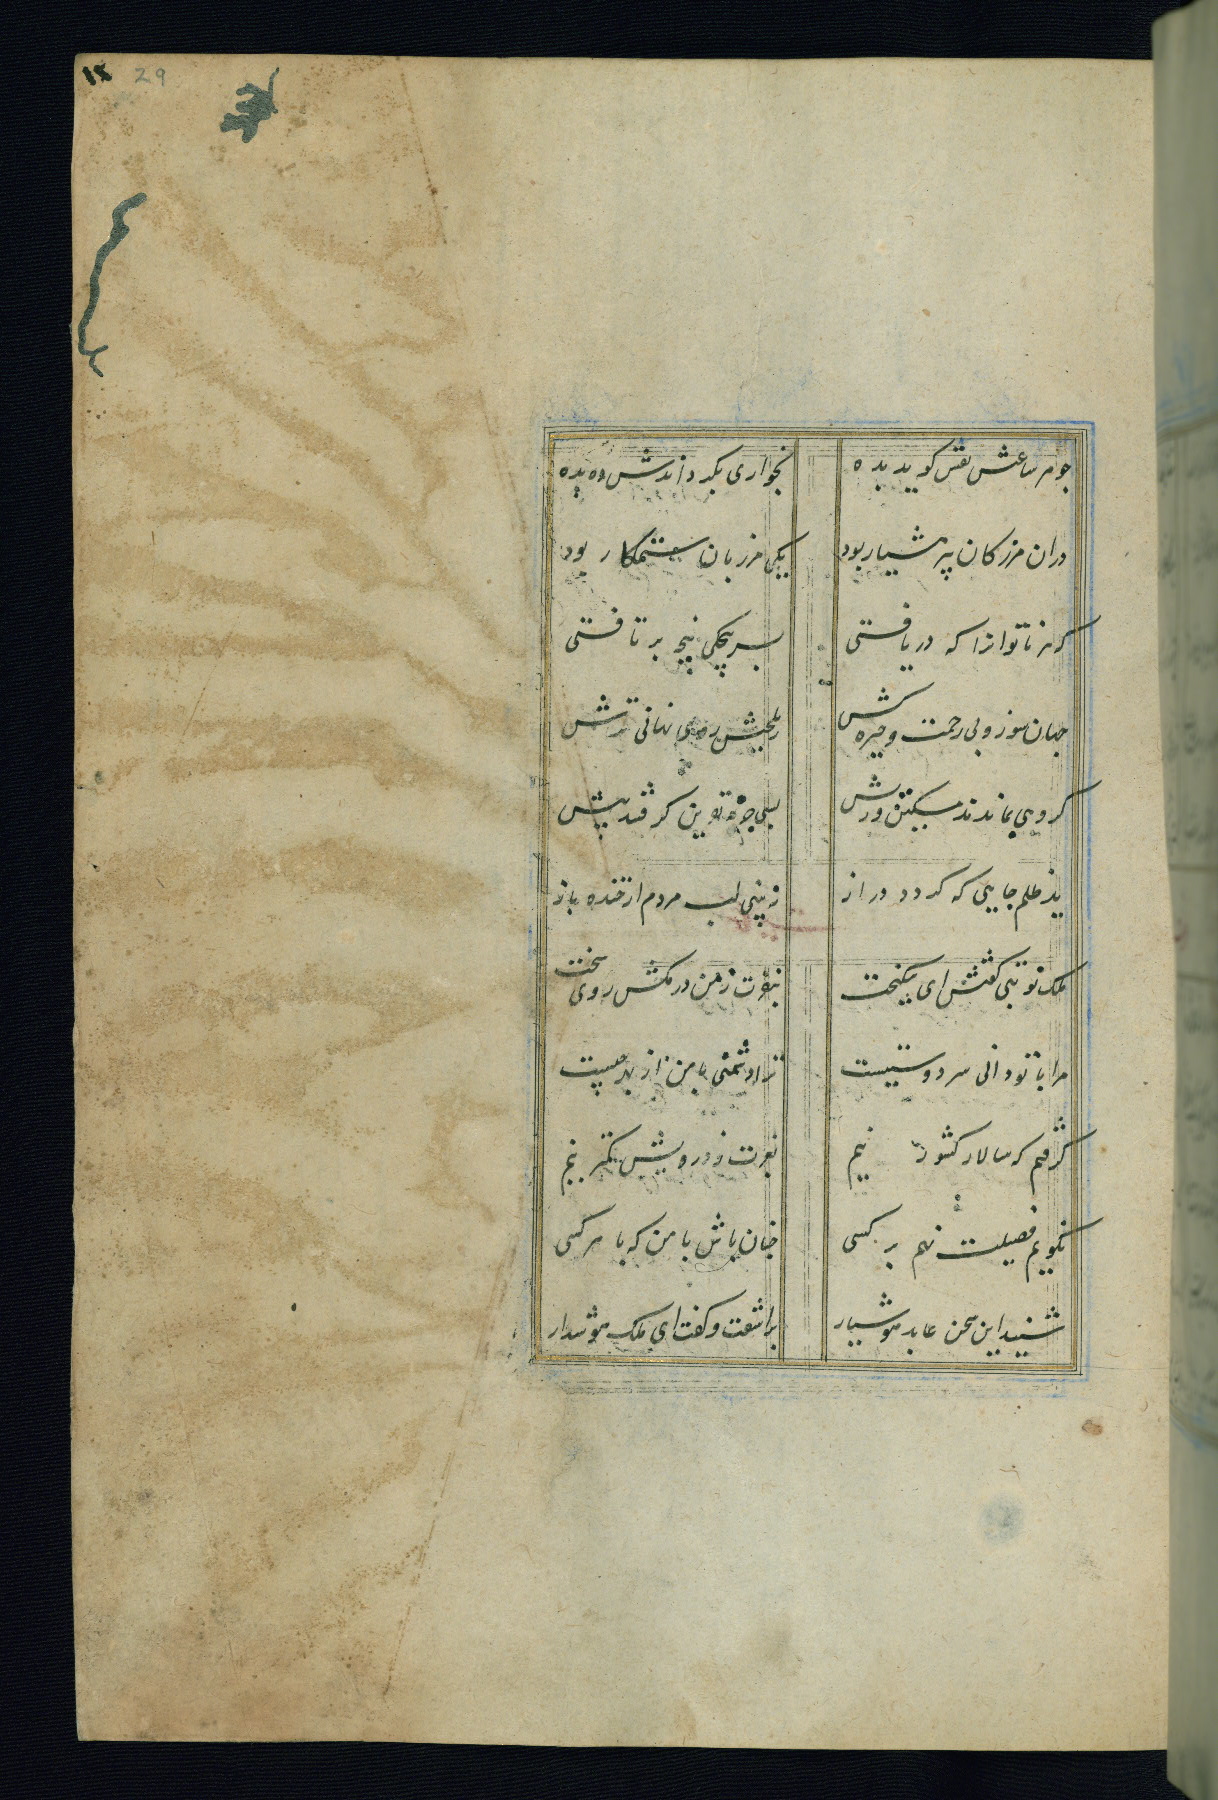 29
چو هر ساعتش نفس گوید بده بخواری بگرداندش ده بده
دران مرز کان پیر هشیار بود یکی مرزبان ستمکار بود
که هر ناتوانرا که دریافتی بسر پنجکی پنجه برتافتی
جهان سوز و بی رحمت و خیره کش ز تلخیش روی نهانی ترش
گروهی بماندند مسکین و ریش پس چرخه نفرین گرفتند پیش
ید ظلم جایی که گردد دراز نه بینی لب مردم از خنده باز
ملک نوبتی گفتش ای نیکبخت بنفرت ز من در مکش روی سخت
مرا با تو دانی سر دوستیست ترا دشمنی با من از بهر چیست
گرفتم که سالار کشور نیم بعزت ز درویش کمتر نیم
نگویم فضیلت نهم بر کسی چنان باش با من که با هر کسی
شنید این سخن عابد هوشیار براشفت و گفت ای ملک هوشدار